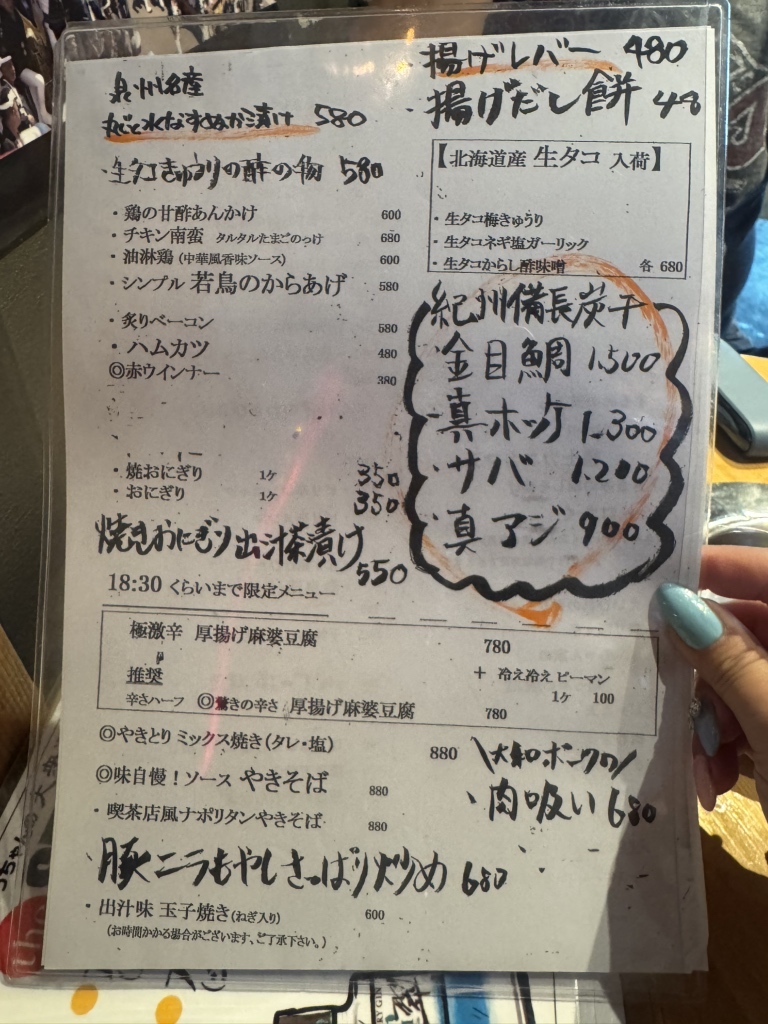 泉州名産
丸ごと水なすぬか漬け 580
・生タコきゅうりの酢の物 580
・鶏の甘酢あんかけ 600
・チキン南蛮 タルタルたまごのっけ 680
・油淋鶏(中華風香味ソース) 600
・シンプル 若鳥のからあげ 580
・炙りベーコン 580
・ハムカツ 480
◎赤ウインナー 380
・焼おにぎり 1ケ 350
・おにぎり 1ケ 350
焼きおにぎり出汁茶漬け 550
揚げレバー 480
揚げだし餅 48
【北海道産 生タコ 入荷】
・生タコ梅きゅうり
・生タコネギ塩ガーリック
・生タコからし酢味噌 各 680
紀州備長炭干
・金目鯛 1.500
・真ホッケ 1.300
・サバ 1.200
・真アジ 900
18:30 くらいまで限定メニュー
極激辛 厚揚げ麻婆豆腐 780
推奨 + 冷え冷え ピーマン
1ケ 100
辛さハーフ ◎驚きの辛さ 厚揚げ麻婆豆腐 780
◎やきとり ミックス焼き(タレ・塩) 880
◎味自慢！ソース やきそば 880
・喫茶店風ナポリタンやきそば 880
\大和ポークの/
・肉吸い 680
・豚ニラもやしさっぱり炒め 680
・出汁味 玉子焼き(ねぎ入り) 600
(お時間かかる場合がございます、ご了承下さい。)